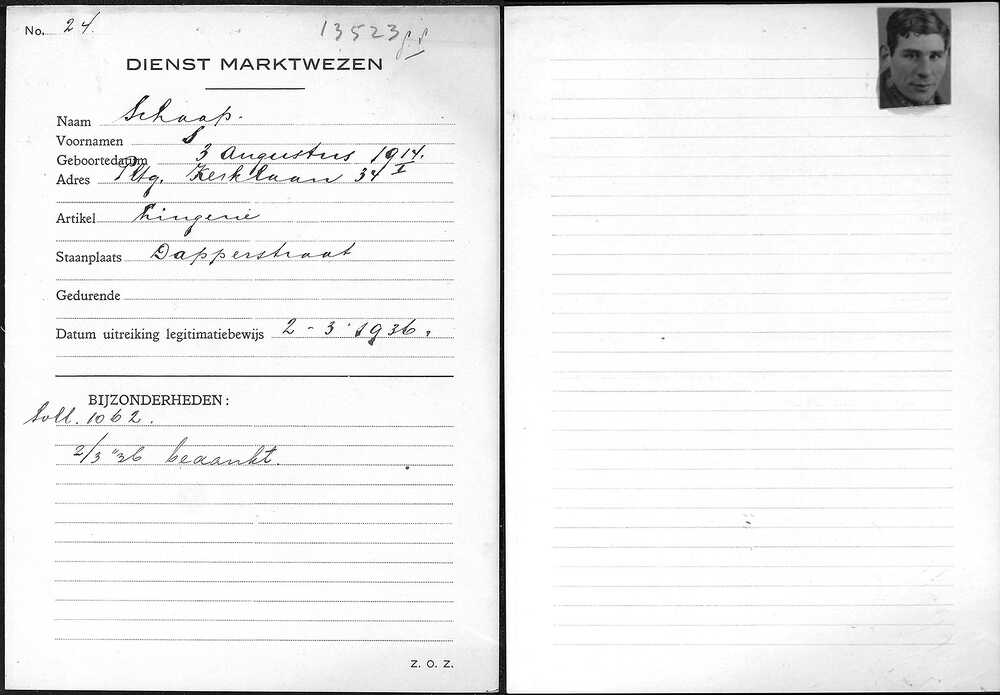 No. 24 13523
DIENST MARKTWEZEN
Naam Schaap.
Voornamen S
Geboortedatum 3 Augustus 1914.
Adres Pltg. Kerklaan 34 I
Artikel Lingerie
Staanplaats Dapperstraat
Gedurende
Datum uitreiking legitimatiebewijs 2-3-1936.
BIJZONDERHEDEN:
Soll. 1062.
2/3 '36 bedankt.
Z. O. Z.